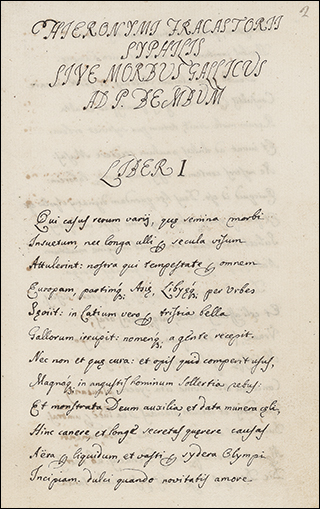 2
HIERONYMI FRACASTORII
SYPHILIS
SIVE MORBUS GALLICUS
AD P. BEMBUM
LIBER I
Qui casus rerum varii, quę semina morbi
Insuetum, nec longa ulli per secula visum
Attulerint: nostra qui tempestate per omnem
Europam, partimq; Asię, Libyęq; per Urbes
Sęviit: in Latium vero per tristia bella
Gallorum irrupit: nomenq; a gente recepit.
Nec non et quę cura: et opis quid comperit usus,
Magnaq; in angustis hominum sollertia rebus:
Et monstrata Deum auxilia, et data munera cęli,
Hinc canere, et longe secretas quęrere causas
Aëra per liquidum, et vasti per sydera Olympi
Incipiam. dulci quando novitatis amore